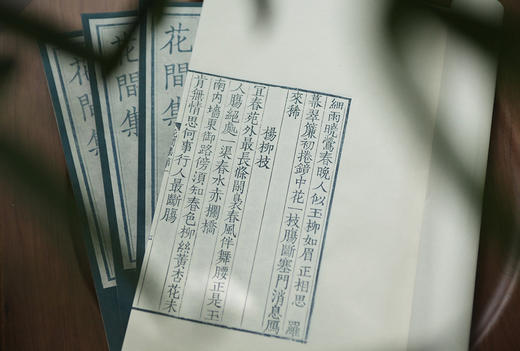 細雨曉鶯春晚人似玉柳如眉正相思 羅
幕翠簾初捲鏡中花一枝腸斷塞門消息鴈
來稀
楊柳枝
宜春苑外最長條閒裊春風伴舞腰正是玉
人腸絕處一渠春水赤欄橋
南內墻東御路傍須知春色柳絲黃杏花未
肯無情思何事行人最斷腸
花間集
花間集
花間集